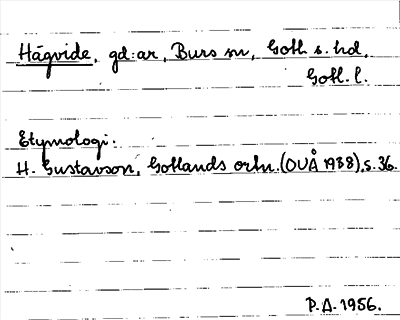 Hägvide, gd:ar, Burs sn, Gotl. s. hd,
Gotl. l.
Etymologi:
H. Gustavson, Gotlands ortn. (OUÅ 1938), s. 36.
P.A. 1956.